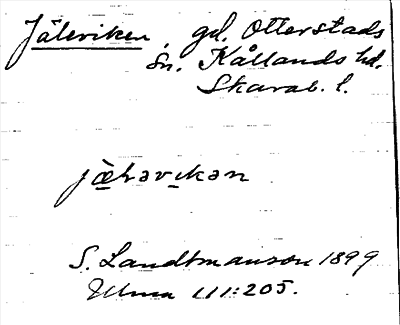 Jäleviken, gd, Otterstads
sn. Kållands hd.
Skarab. l.
S. Landtmanson 1899
Ulma 111:205.